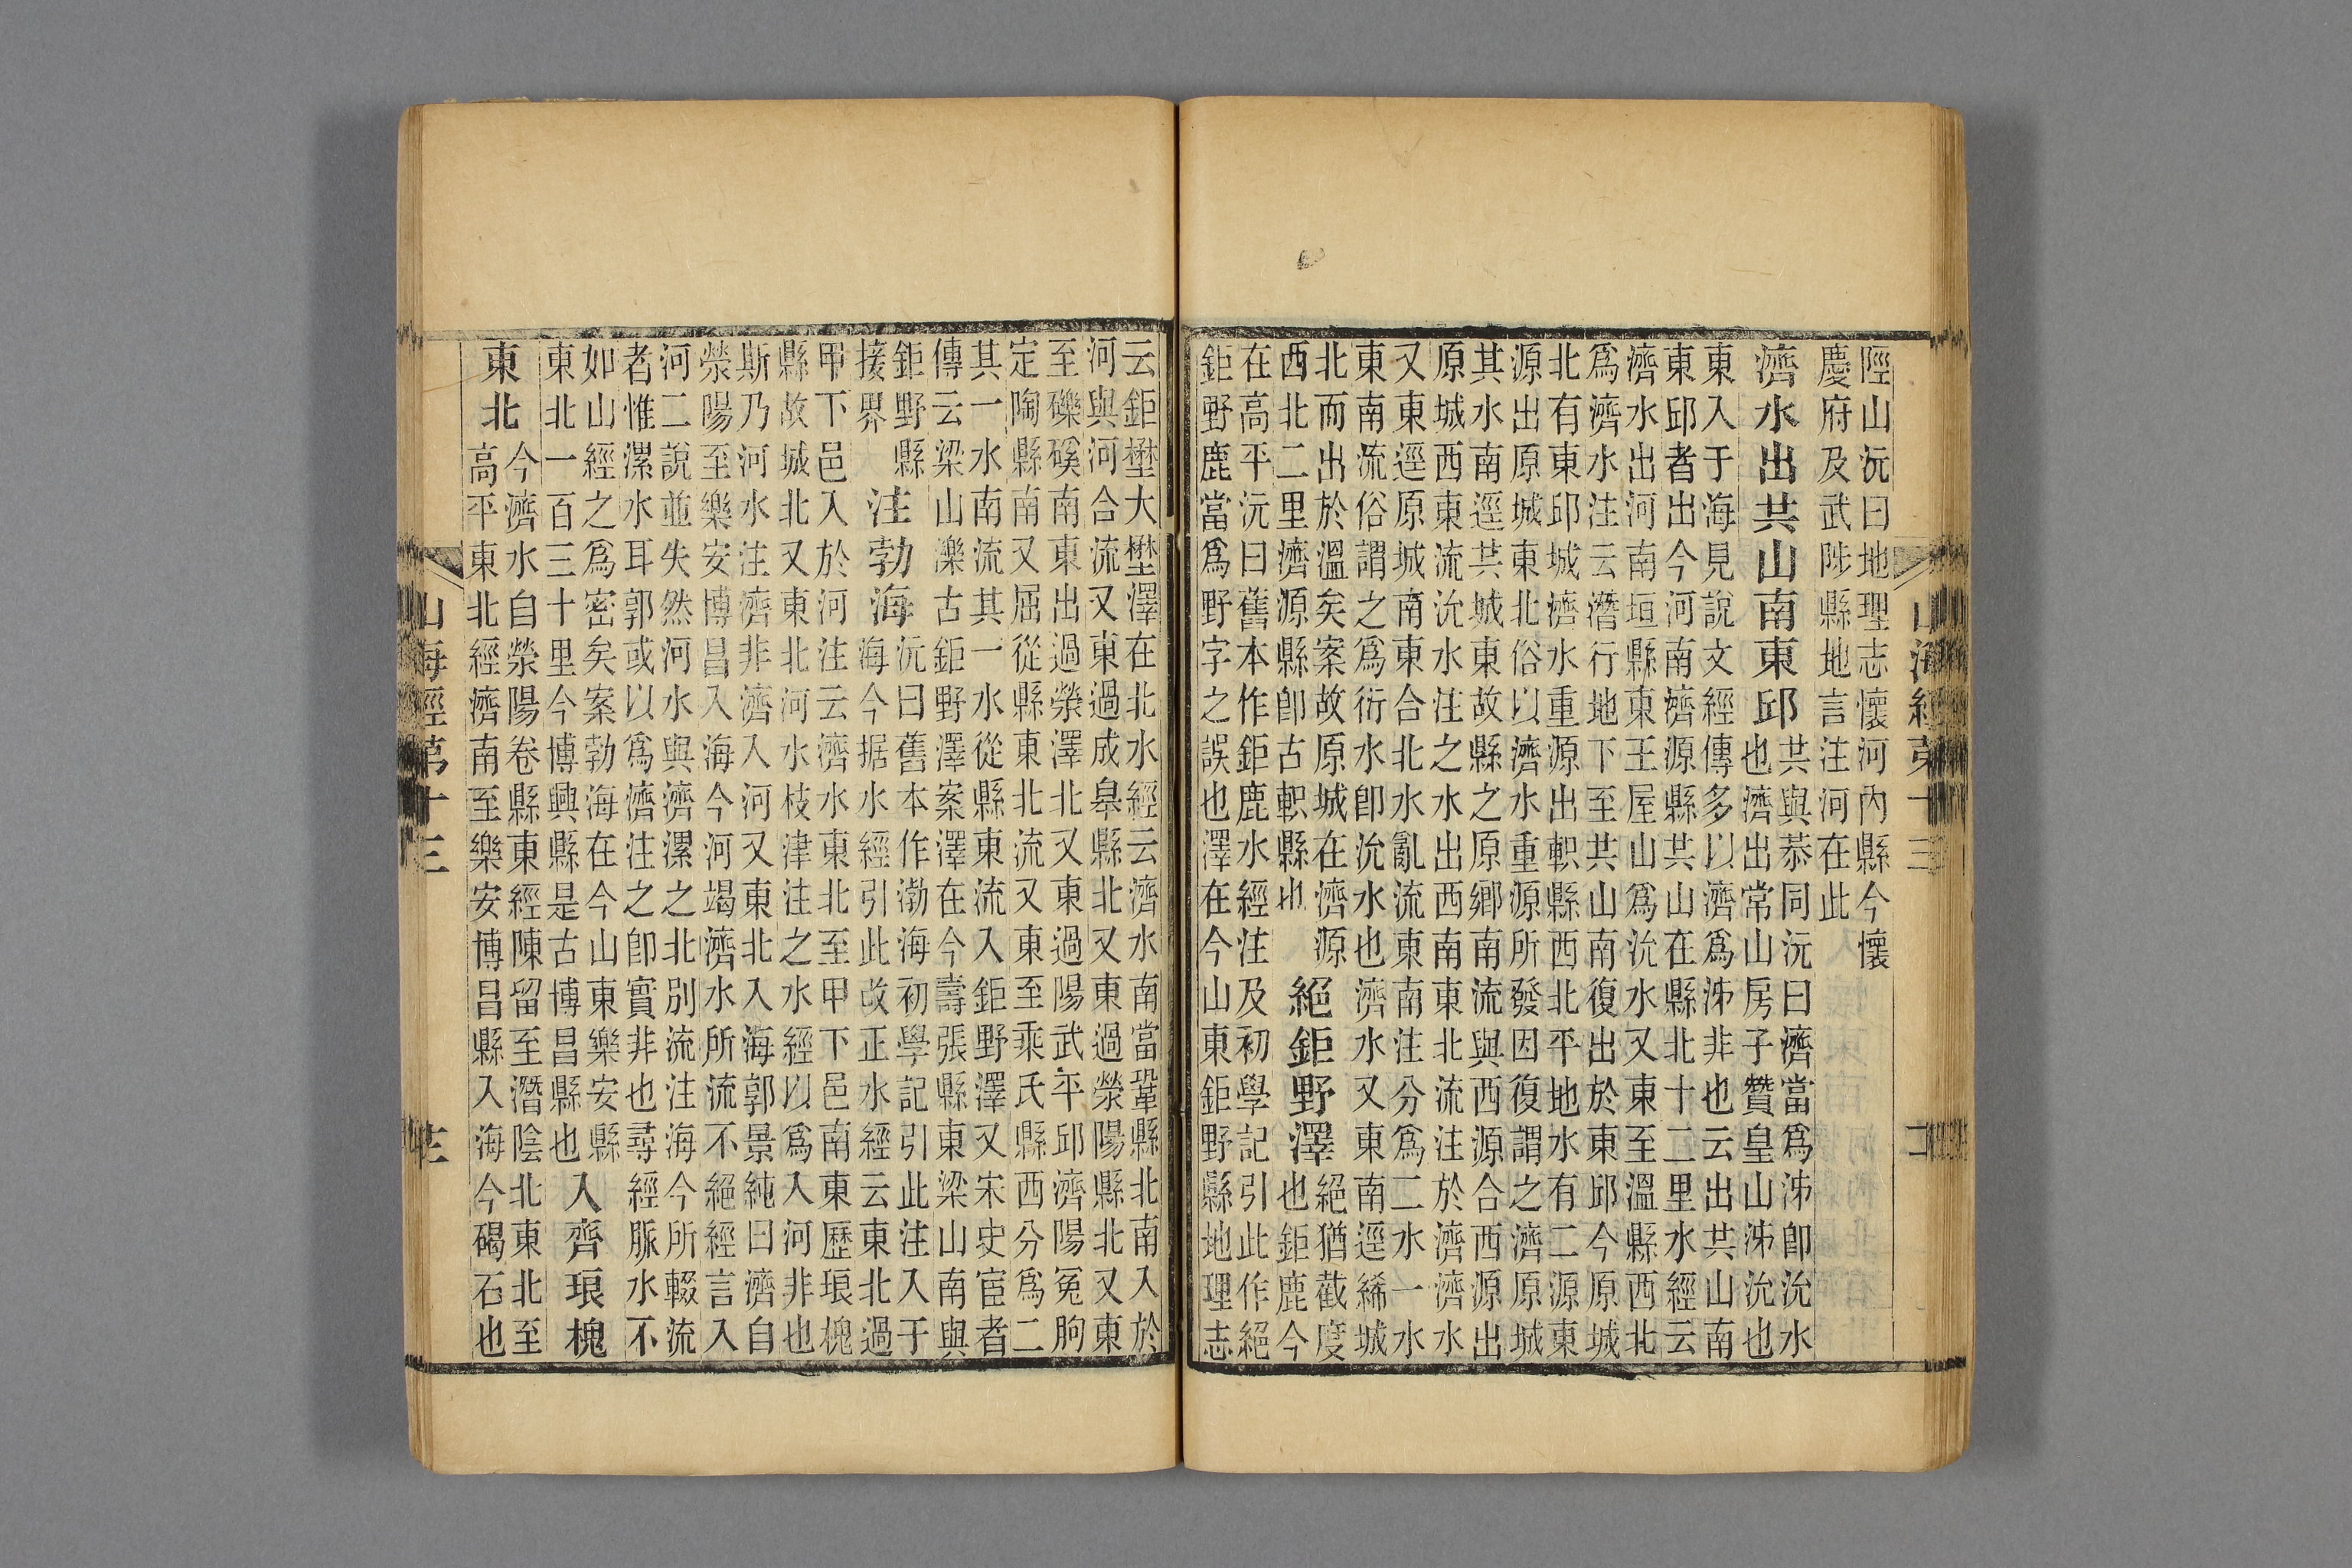 陘山沅曰地理志懷河內縣今懷
慶府及武陟縣地言注河在此
濟水出共山南東邱
共與恭同沅曰濟當爲泲卽沇水
也濟出常山房子贊皇山泲沇也
東入于海見說文經傳多以濟爲泲非也云出共山南
東邱者出今河南濟源縣共山在縣北十二里水經云
濟水出河南垣縣東王屋山爲沇水又東至溫縣西北
爲濟水注云潛行地下至共山南復出於東邱今原城
北有東邱城濟水重源出軹縣西北平地水有二源東
源出原城東北俗以濟水重源所發因復謂之濟原城
其水南逕共城東故縣之原鄉南流與西源合西源出
原城西東流沇水注之水出西南東北流注於濟濟水
又東逕原城南東合北水亂流東南注分爲二水一水
東南流俗謂之爲衍水卽沇水也濟水又東南逕絺城
北而出於溫矣案故原城在濟源
西北二里濟源縣卽古軹縣也
絕鉅野澤
絕猶截度
也鉅鹿今
在高平沅曰舊本作鉅鹿水經注及初學記引此作絕
鉅野鹿當爲野字之誤也澤在今山東鉅野縣地理志
山海經第十三
二
云鉅壄大壄澤在北水經云濟水南當鞏縣北南入於
河與河合流又東過成皋縣北又東過滎陽縣北又東
至礫磎南東出過滎澤北又東過陽武平邱濟陽冤朐
定陶縣南又屈從縣東北流又東至乘氏縣西分爲二
其一水南流其一水從縣東流入鉅野澤又宋史宦者
傳云梁山濼古鉅野澤案澤在今壽張縣東梁山南與
鉅野縣
接界
注勃海
沅曰舊本作渤海初學記引此注入于
海今据水經引此改正水經云東北過
甲下邑入於河注云濟水東北至甲下邑南東歷琅槐
縣故城北又東北河水枝津注之水經以爲入河非也
斯乃河水注濟非濟入河又東北入海郭景純曰濟自
滎陽至樂安博昌入海今河竭濟水所流不絕經言入
河二說並失然河水與濟漯之北別流注海今所輟流
者惟漯水耳郭或以爲濟注之卽實非也尋經脈水不
如山經之爲密矣案勃海在今山東樂安縣
東北一百三十里今博興縣是古博昌縣也
入齊琅槐
東北
今濟水自滎陽卷縣東經陳留至潛陰北東北至
高平東北經濟南至樂安博昌縣入海今碣石也
山海經第十三